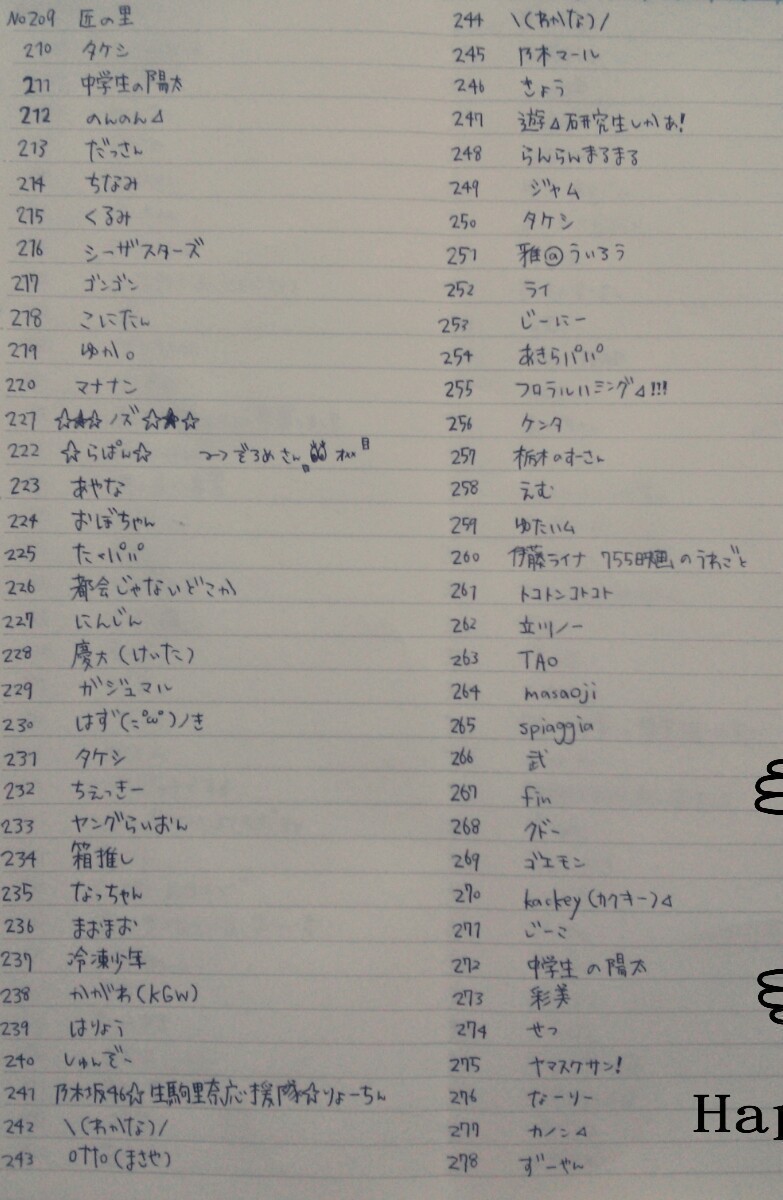 No209 匠の里
210 タケシ
211 中学生の陽太
212 のんのん⊿
213 だっさん
214 ちなみ
215 くるみ
216 シーザスターズ
217 ゴンゴン
218 こにたん
219 ゆか。
220 マナナン
221 ☆★☆ノズ☆★☆
222 ☆らぱん☆ つーつぞろめさん
223 あやな
224 おぼちゃん
225 たくパパ
226 都会じゃないどこか
227 にんじん
228 慶太(けいた)
229 ガジュマル
230 はず(=゚ω゚)ノき
231 タケシ
232 ちえっきー
233 ヤングらいおん
234 箱推し
235 なっちゃん
236 まおまお
237 冷凍少年
238 かがわ(KGW)
239 はりょう
240 しゅんぞー
241 乃木坂46☆生駒里奈応援隊☆りょーちん
242 \(わかな)/
243 otto(まさや)
244 \(わかな)/
245 乃木マール
246 きょう
247 遊⊿研究生しかあ!
248 らんらんまるまる
249 ジャム
250 タケシ
251 雅@ういろう
252 ライ
253 じーにー
254 あきらパパ
255 フロラルハミング⊿!!!
256 ケンタ
257 栃木のすーさん
258 えむ
259 ゆたいム
260 伊藤ライナ 755映画のうわごと
261 トコトンコトコト
262 立川ノー
263 TAO
264 masaoji
265 spiaggia
266 武
267 fin
268 クドー
269 ゴエモン
270 kackey(カクキー)⊿
271 じーこ
272 中学生の陽太
273 彩美
274 せっ
275 ヤマスケサン!
276 なーりー
277 カノン⊿
278 ずーやん
Hap